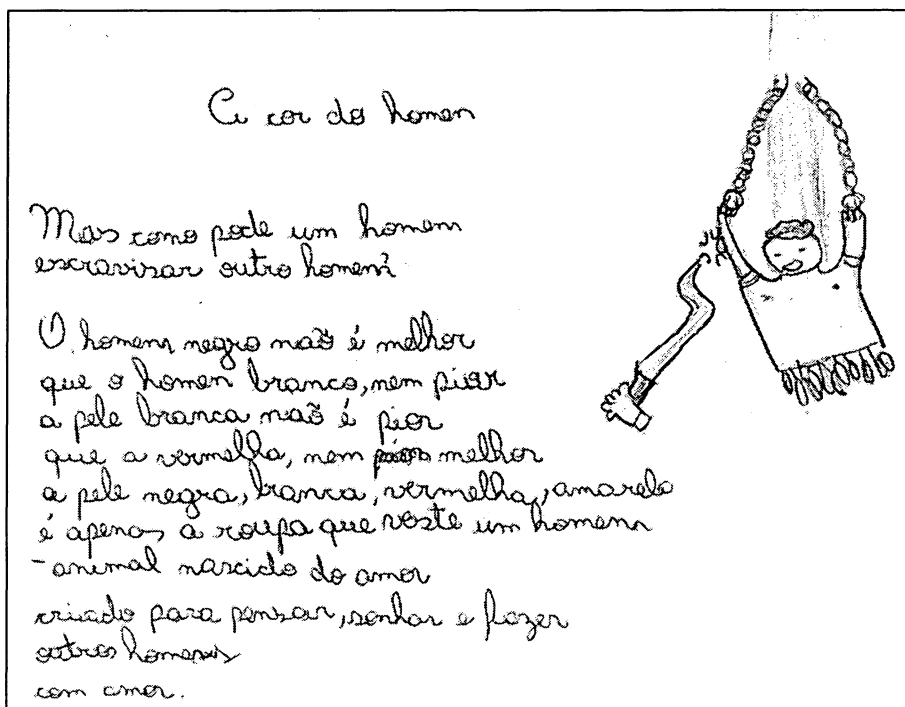 A cor do homen
Mas como pode um homem
escravisar outro homem?
O homem negro naõ é melhor
que o homen branco, nem pior
a pele branca naõ é pior
que a vermelha, nem pior melhor
a pele negra, branca, vermelha, amarela
é apenas a roupa que veste um homem
- animal nascido do amor
criado para pensar, sonhar e fazer
outros homens
com amor.